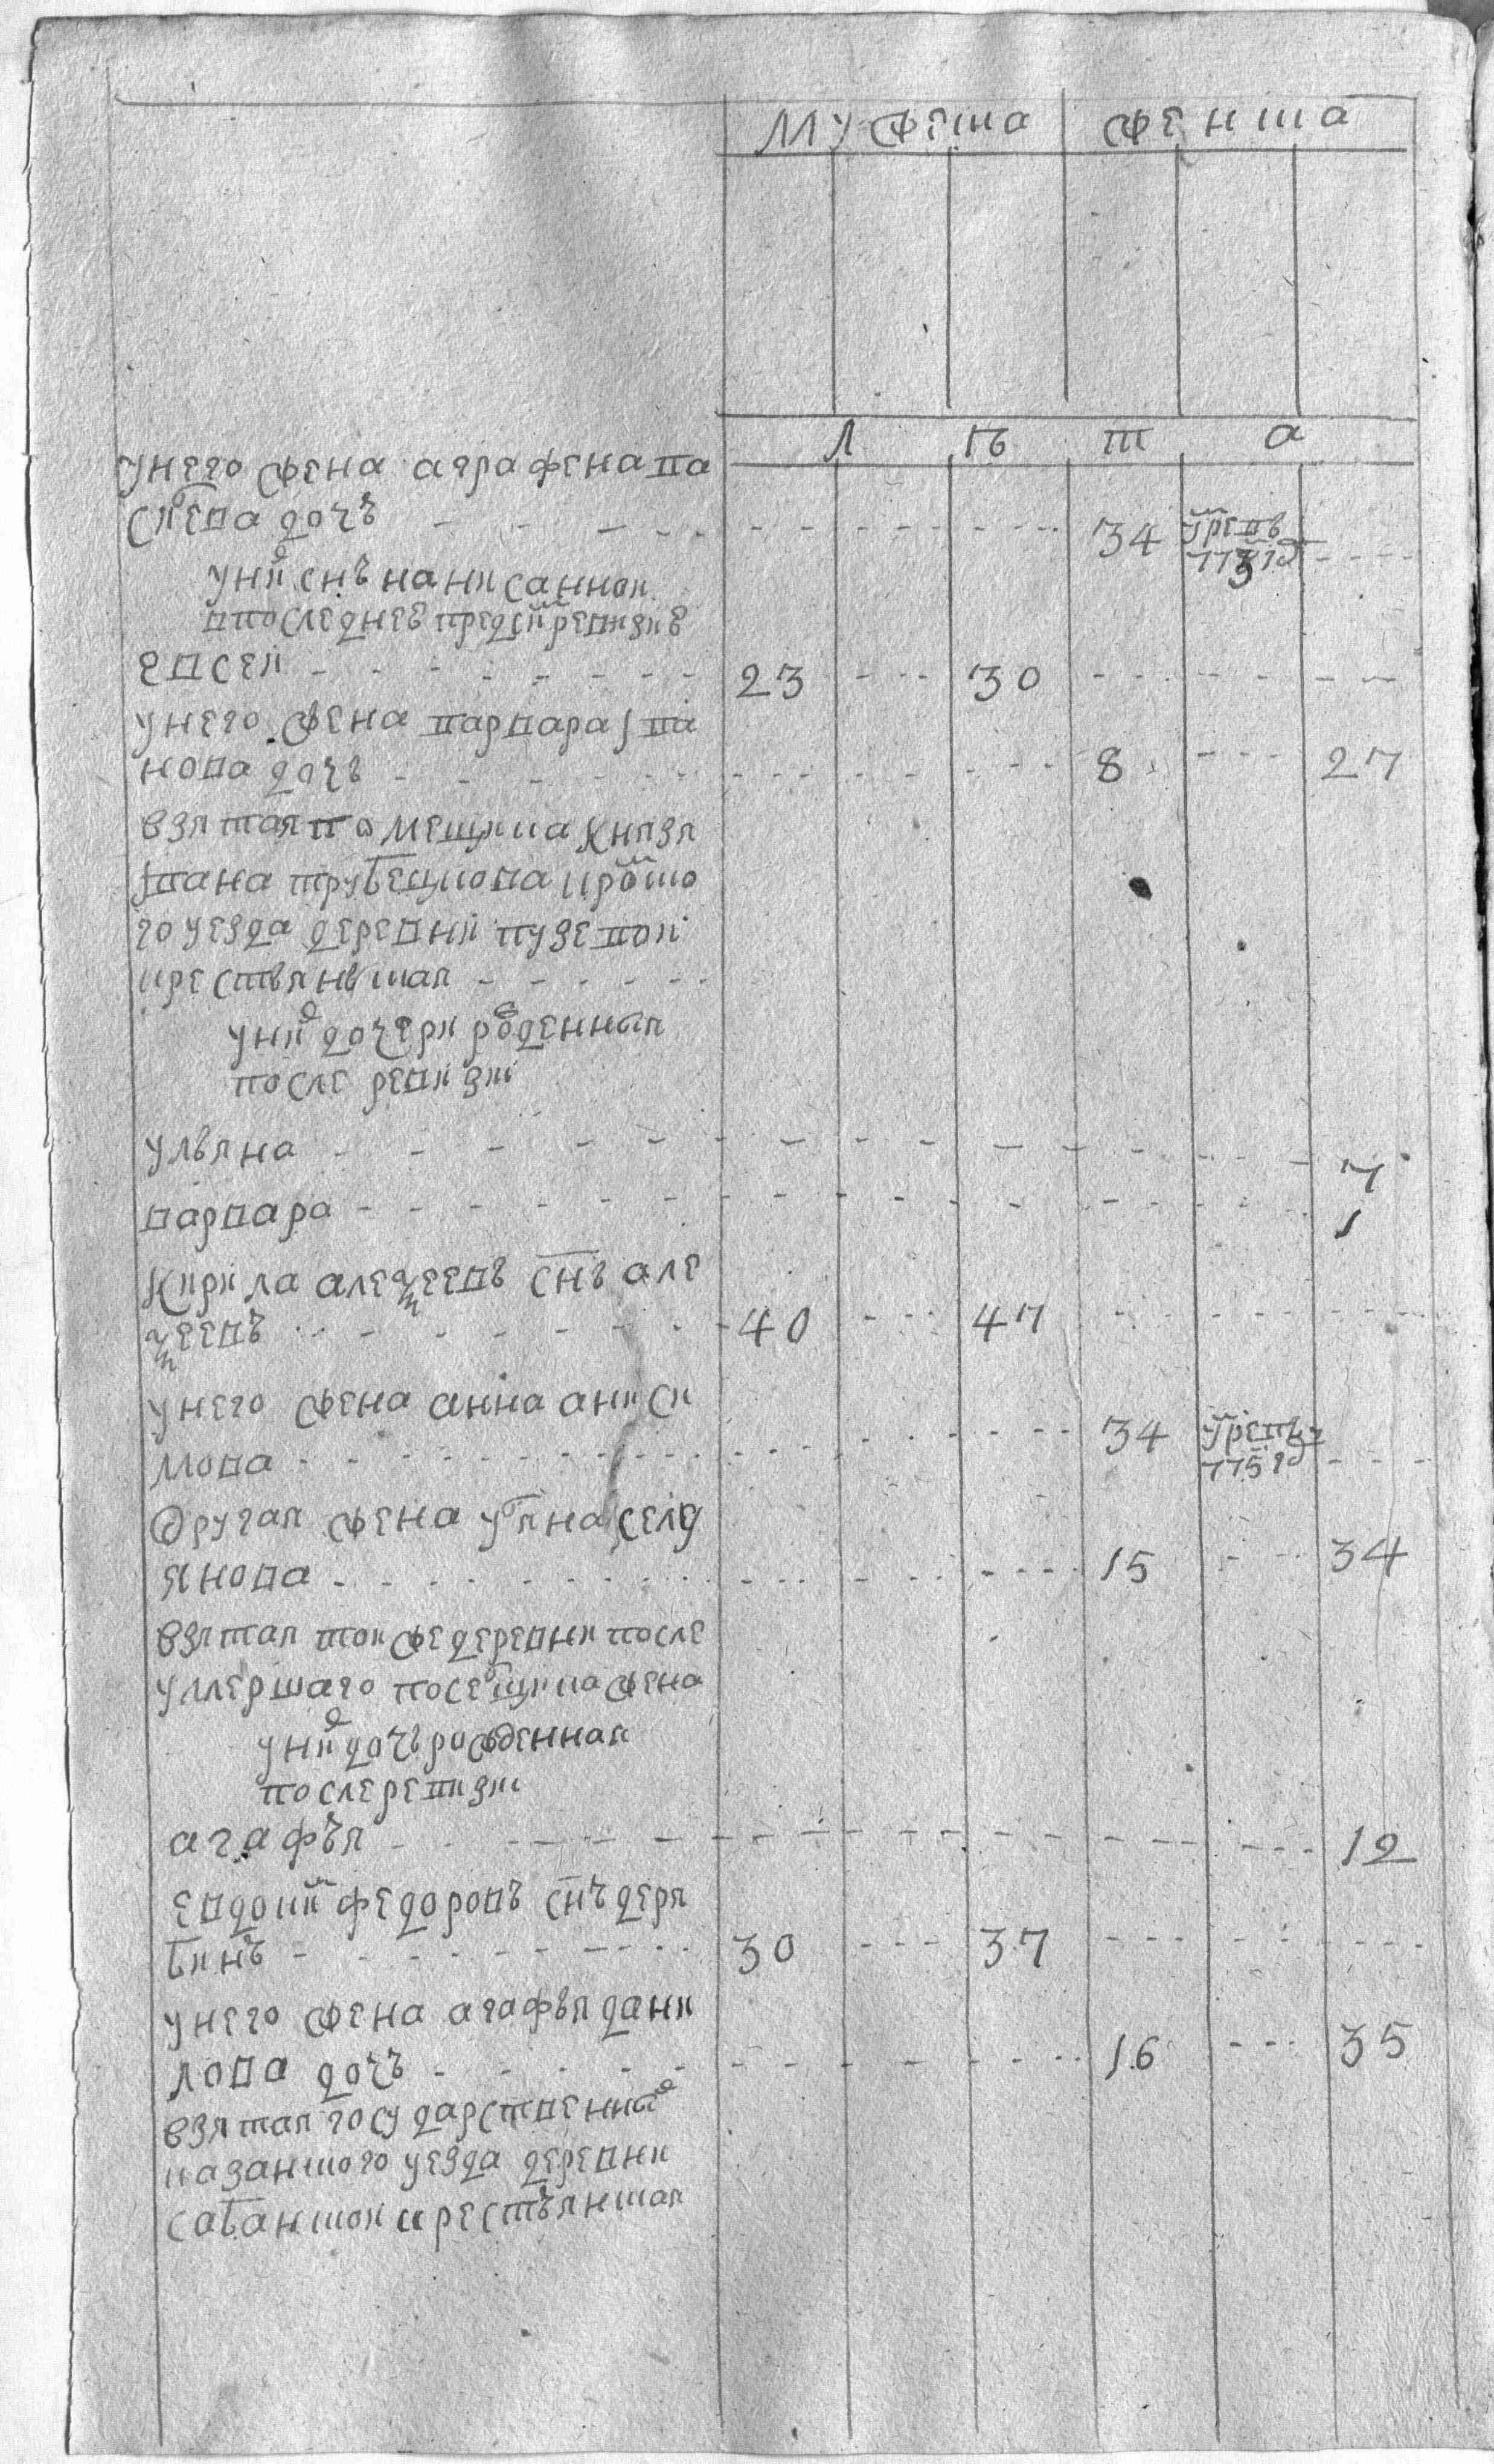 мужеска женска
л ѣ т а
унего жена аграфена па
силева дочь 34 умре въ 773 год
уних снъ написанной
впоследнею предсим ревизию
евсей 23 30
унего жена варвара iва
нова дочь 8 27
взятая помещика князя
iвана трубецкова кромско
го уезда деревни пузевой
крестьянская
уних дочери рожденныя
после ревизiи
ульяна 7
варвара 1
Кирила алексеевъ снъ але
ксеевъ 40 47
унего жена анна аниси
мова 34 умре въ 775 год
Другая жена уляна, селив
янова 15 34
взятая тойже деревни после
умершаго поселщика жена
уних дочь рожденная
послеревизiи
агафья 12
евдоким федоровъ снъ деря
бинъ 30 37
унего жена агафья дани
лова дочь 16 35
взятая государственных
казанского уезда деревни
сабанской крестьянская